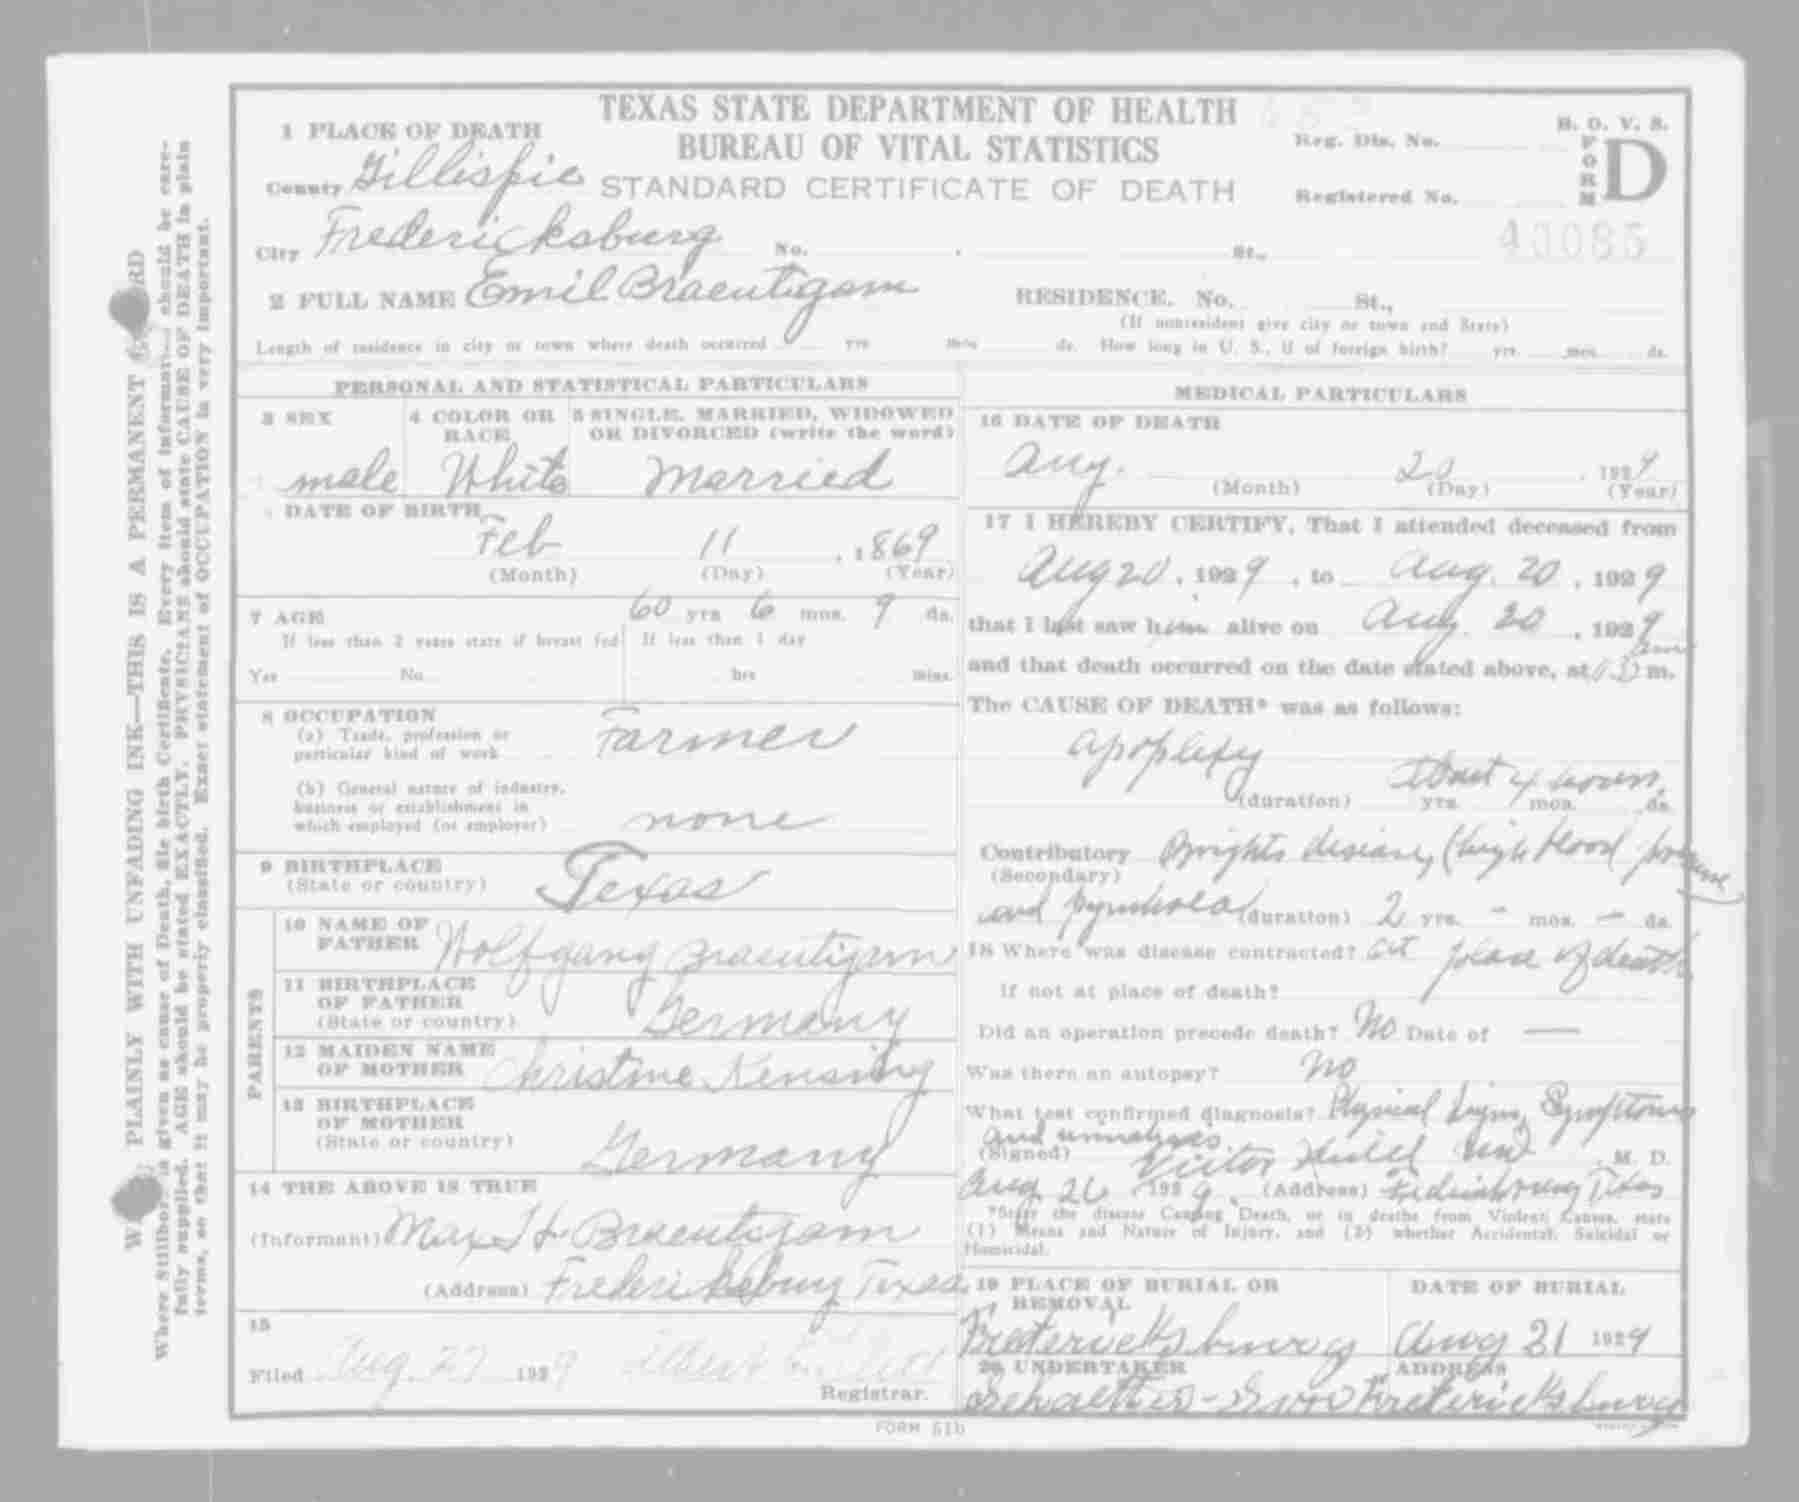 TEXAS STATE DEPARTMENT OF HEALTH
BUREAU OF VITAL STATISTICS
STANDARD CERTIFICATE OF DEATH
Reg. Dis. No.
Registered No.
B. O. V. S.
FORM D
40085
1 PLACE OF DEATH
County Gillispie
City Fredericksburg No. St.,
2 FULL NAME Emil Braeutigam RESIDENCE. No. St.,
(If nonresident give city or town and State)
Length of residence in city or town where death occurred yrs mos. ds. How long in U. S., if of foreign birth? yrs. mos. ds.
PERSONAL AND STATISTICAL PARTICULARS
3 SEX
male
4 COLOR OR RACE
White
5 SINGLE, MARRIED, WIDOWED
OR DIVORCED (write the word)
Married
DATE OF BIRTH
Feb 11, 1869
(Month) (Day) (Year)
7 AGE 60 yrs 6 mos. 9 ds.
If less than 2 years state if breast fed If less than 1 day
Yes No hrs mins.
8 OCCUPATION
(a) Trade, profession or
particular kind of work Farmer
(b) General nature of industry,
business or establishment in
which employed (or employer) none
9 BIRTHPLACE
(State or country) Texas
PARENTS
10 NAME OF
FATHER Wolfgang Braeutigam
11 BIRTHPLACE
OF FATHER
(State or country) Germany
12 MAIDEN NAME
OF MOTHER Christine
13 BIRTHPLACE
OF MOTHER
(State or country) Germany
14 THE ABOVE IS TRUE
(Informant) Max H Braeutigam
(Address) Fredericksburg Texas
15
Filed Aug. 27 1929
Registrar.
MEDICAL PARTICULARS
16 DATE OF DEATH
Aug. 20, 1929
(Month) (Day) (Year)
17 I HEREBY CERTIFY, That I attended deceased from
Aug 20, 1929, to Aug. 20, 1929
that I last saw him alive on Aug. 20, 1929
and that death occurred on the date stated above, at am m.
The CAUSE OF DEATH* was as follows:
Apoplexy
about 4 hours.
(duration) yrs. mos. ds.
Contributory Brights disease, (high blood pressure
(Secondary)
and (duration) 2 yrs. - mos. - ds.
18 Where was disease contracted? at place of death
if not at place of death?
Did an operation precede death? No Date of —
Was there an autopsy? No
What test confirmed diagnosis? Physical signs, Symptoms
and urinalysis.
(Signed) Victor M. D.
Aug 26, 1929. (Address) Fredericksburg Texas
*State the disease Causing Death, or in deaths from Violent Causes, state
(1) Means and Nature of Injury, and (2) whether Accidental, Suicidal or
Homicidal.
19 PLACE OF BURIAL OR
REMOVAL
Fretericksburg
DATE OF BURIAL
Aug 21 1929
20 UNDERTAKER
ADDRESS
Fretericksburg
FORM 51b
PLAINLY WITH UNFADING INK—THIS IS A PERMANENT
Where Stillborn is given as cause of Death, file birth Certificate. Every item of information should be care-
fully supplied. AGE should be stated EXACTLY. PHYSICIANS should state CAUSE OF DEATH in plain
terms, so that it may be properly classified. Exact statement of OCCUPATION is very important.